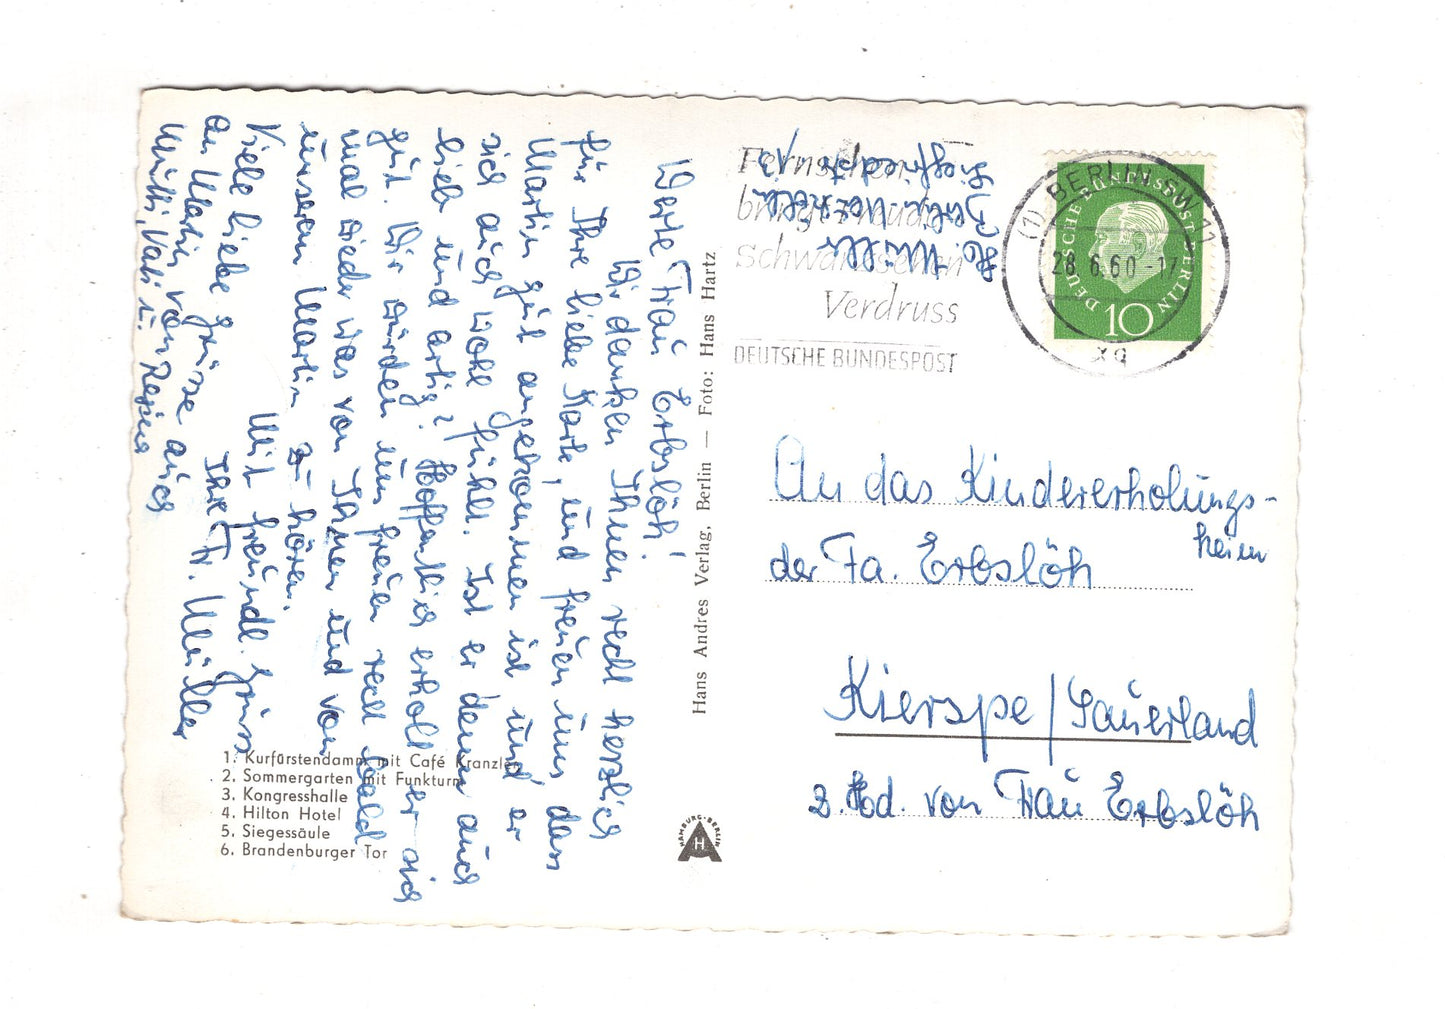 Werte Frau Erbslöh!
Wir danken Ihnen recht herzlich
für Ihre liebe Karte, und freuen uns dass
Martin gut angekommen ist und er
sich auch wohl fühlt. Ist er denn auch
lieb und artig? Hoffentlich erholt er sich
gut. Wir würden uns freuen recht bald
mal wieder was von Ihnen und von
unseren Martin zu hören.
Mit freundl. Grüss
Ihre Fr. Müller
Viele liebe Grüsse auch
an Martin von
Mutti, Vati u. Regina
1. Kurfürstendamm mit Café Kranzler
2. Sommergarten mit Funkturm
3. Kongresshalle
4. Hilton Hotel
5. Siegessäule
6. Brandenburger Tor
Hans Andres Verlag, Berlin — Foto: Hans Hartz
HAMBURG-BERLIN
H
H. Müller
Berlin
Fernsehen
bringt Freude
Schwarzsehen
Verdruss
DEUTSCHE BUNDESPOST
(1) BERLIN SW 11
28.6.60-17
xq
DEUTSCHE BUNDESPOST BERLIN
10
An das Kindererholungs-
heim
der Fa. Erbslöh
Kierspe/Sauerland
z. Hd. von Frau Erbslöh